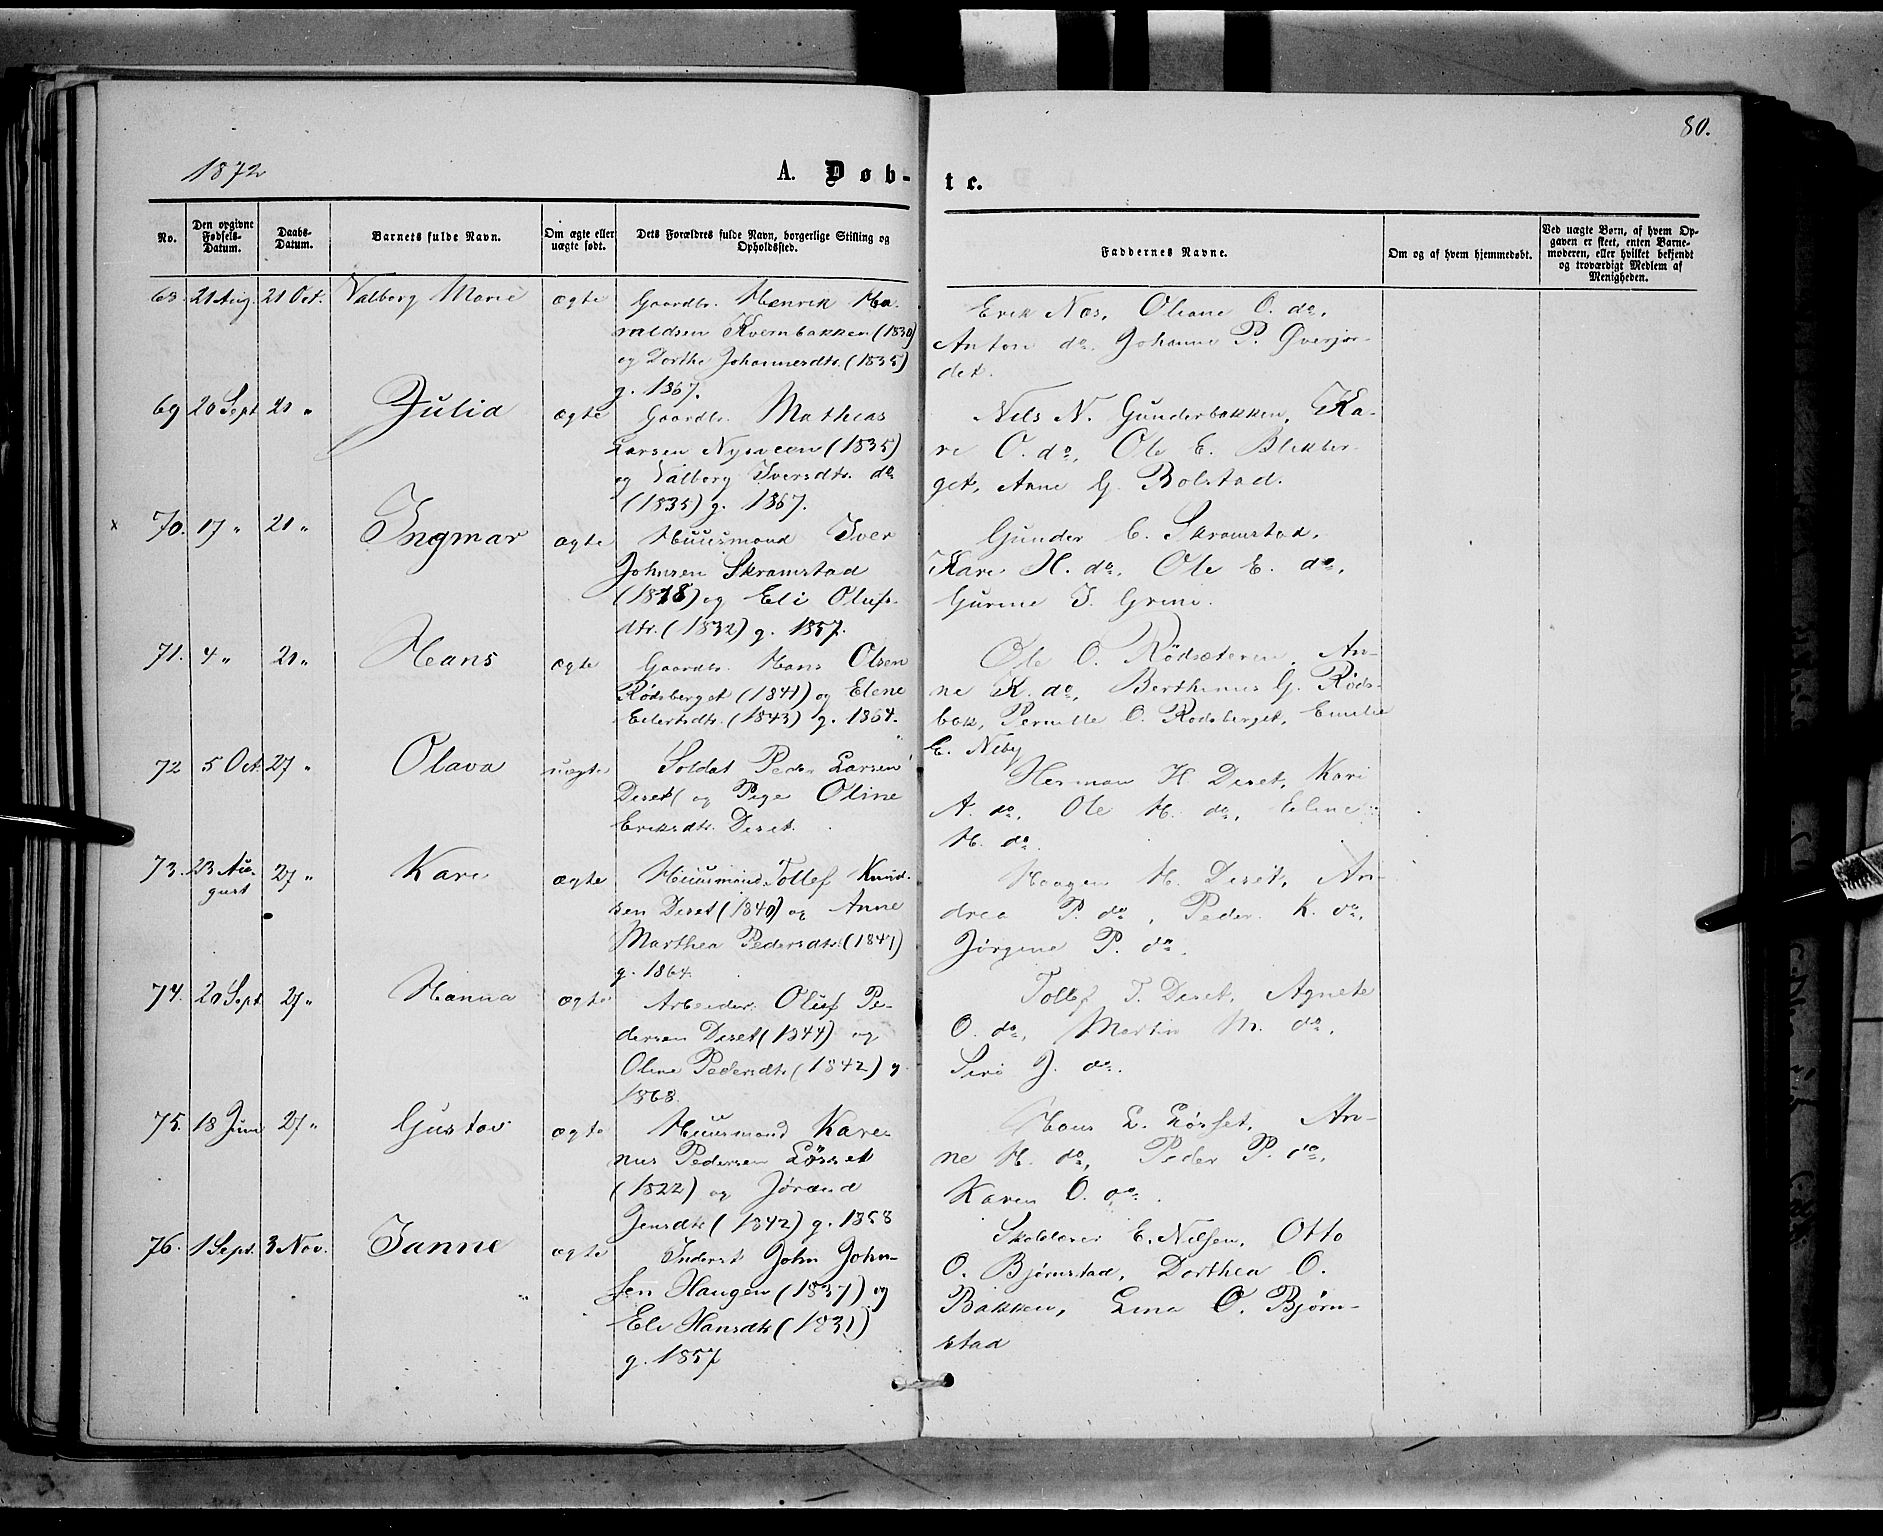 80.
1872
A. Døb-
te.
No.
Den opgivne Fødsels-Datum.
Daabs-Datum.
Barnets fulde Navn.
Om ægte eller uægte født.
Dets Forældres fulde Navn, borgerlige Stilling og Opholdssted.
Faddernes Navne.
Om og af hvem hjemmedøbt.
Ved uægte Børn, af hvem Opgaven er skeet, enten Barnemoderen, eller hvilket bekjendt og troværdigt Medlem af Menigheden.
68 21 Aug. 21 Oct. Valborg Marie ægte Gaardbr. Henrik Ha-
raldsen Kvernbakken (1830)
og Dorthe Johannesdtr. (1835)
g. 1867.
Erik Næs, Oliane O. do,
Anton do. Johanne P. Øverjor-
det.
69 20 Sept. 21 " Julia ægte Gaardbr. Mathias
Larsen Nysveen (1835)
og Valborg Iversdtr. do
(1835) g. 1867.
Nils N. Gunderbakken, Ka-
ri O. do, Ole E. Blekber-
get, Anne G. Bolstad.
x 70. 17 " 20 " Ingmar ægte Huusmand Iver
Johnsen Skramstad
(1818) og Eli Olufs-
dtr. (1832) g. 1857.
Gunder C. Skramstad,
Kari H. do, Ole E. do,
Gurine I. Grini.
71. 4 " 20 " Hans ægte Gaardbr. Hans Olsen
Rødsberget (1841) og Elene
Eilertsdtr. (1843) g. 1864.
Ole O. Rödsæteren, An-
ne K. do, Berthinius G. Røds-
bak, Pernille O. Rødsberget, Emilie
E. Neby
72 5 Oct. 27 " Olava uægte Soldat Peder Larsen
Deset og Pige Oline
Eriksdtr. Deset.
Herman H. Deset, Kari
A. do, Ole H. do, Eline
H. do.
73. 23 Au-
gust 27 " Kari ægte Huusmand Tollef Knud-
sen Deset (1840) og Anne
Marthea Pedersdtr. (1841)
g. 1864.
Haagen H. Deset, An-
drea P. do, Peder K. do,
Jørgine P. do.
74. 20 Sept. 27 " Hanna ægte Arbeider Oluf Pe-
dersen Deset (1844) og
Oline Pedersdtr. (1842) g.
1868.
Tollef T. Deset, Agnete
O. do, Martin M. do,
Siri J. do.
75. 18 Juni 27 " Gustav ægte Huusmand Kare-
nus Pedersen Løsset
(1822) og Jørand
Jensdtr. (1842) g. 1868
Hans L. Løsset, An-
ne H. do, Peder P. do,
Karen O. do.
76. 1 Sept. 3 Nov. Janne ægte Inderst John John-
sen Haugen (1837) og
Eli Hansdtr. (1831)
g. 1857
Skolelærer E. Nilsen, Otto
O. Bjørnstad, Dorthea O.
Bakken, Lina O. Bjørn-
stad